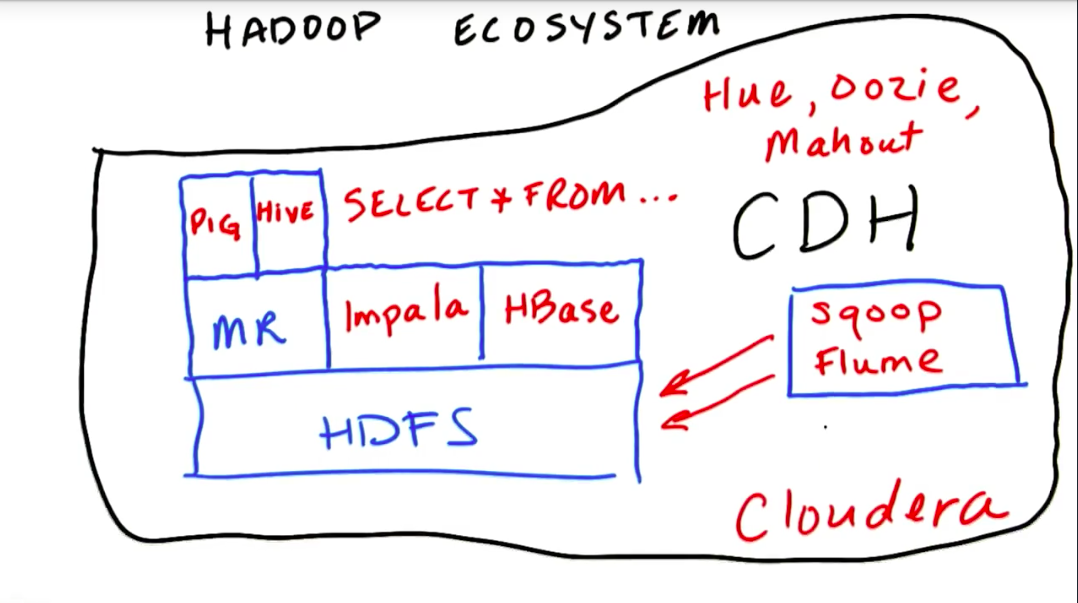 HADOOP ECOSYSTEM
Hue, Oozie,
Mahout
PIG HIVE SELECT * FROM...
CDH
MR Impala HBase
Sqoop
Flume
HDFS
Cloudera